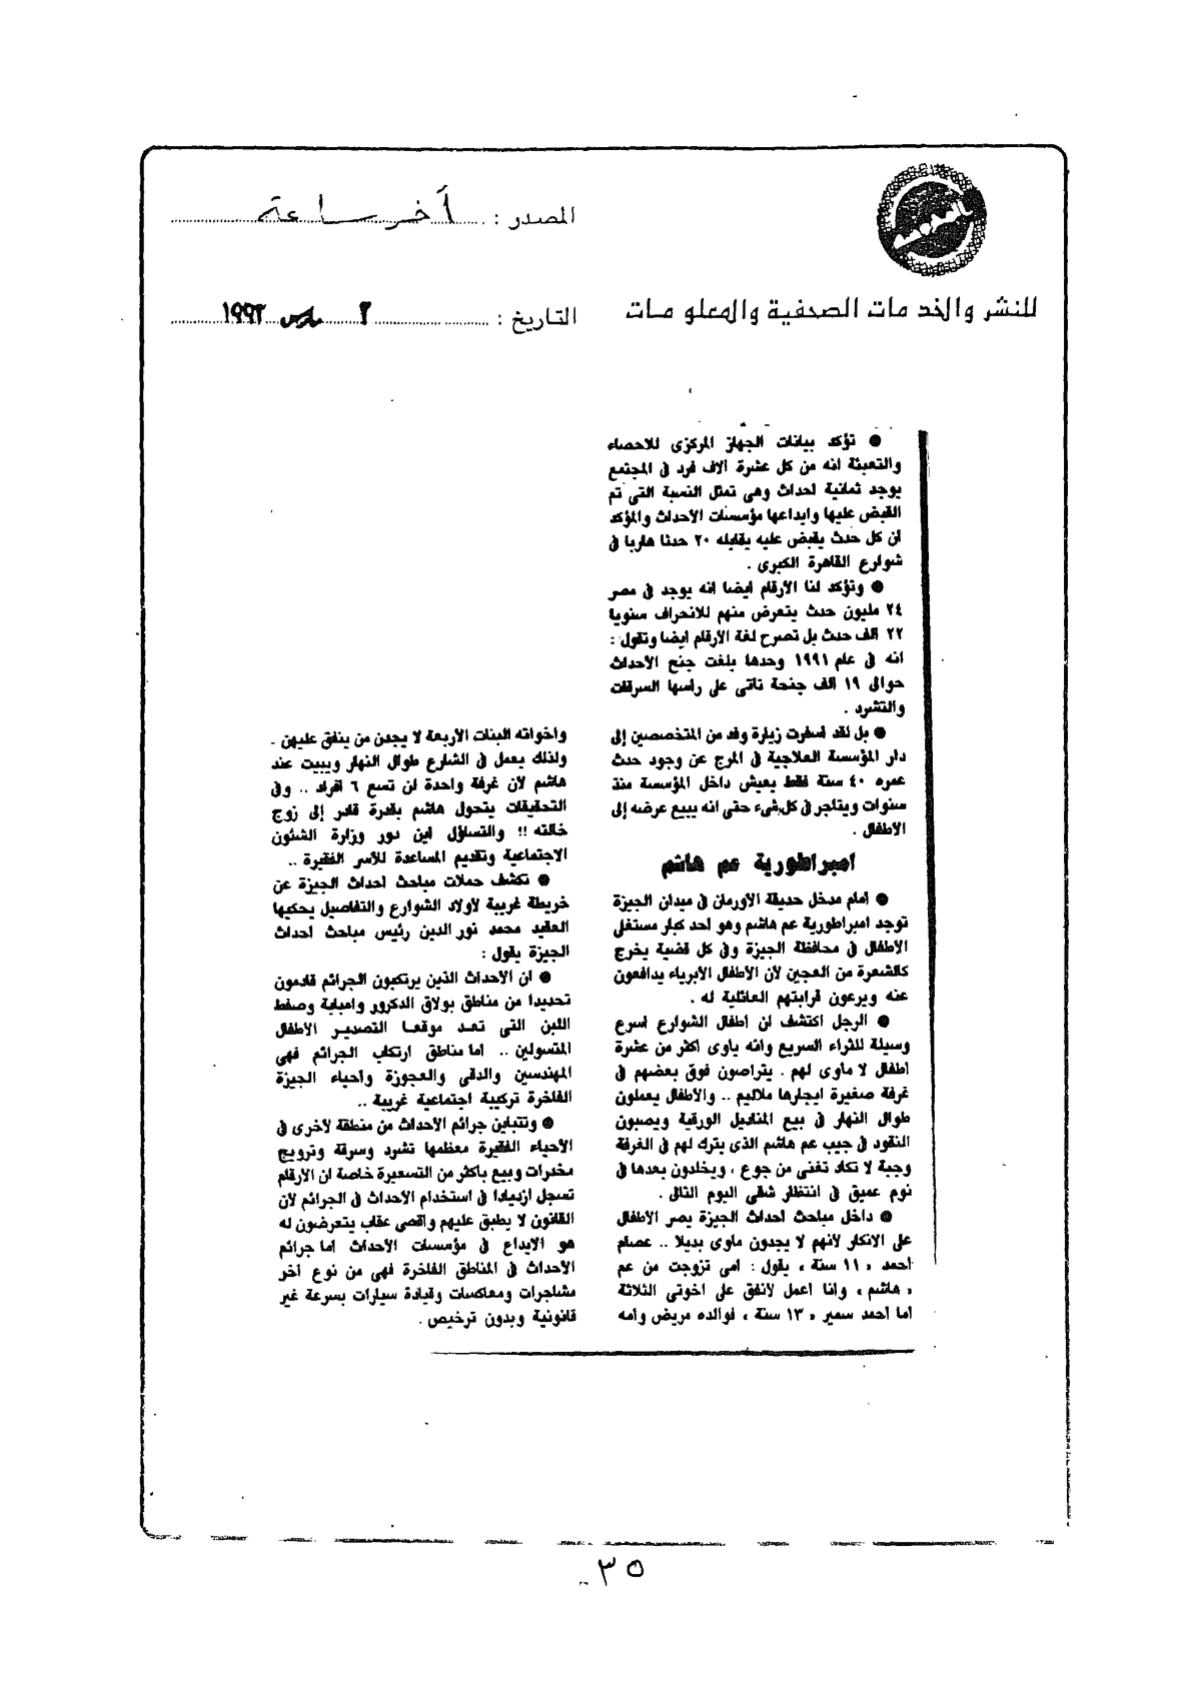 المصدر : أخر ساعة
للنشر والخدمات الصحفية والمعلومات
التاريخ : ٢ مارس ١٩٩٢
● تؤكد بيانات الجهاز المركزى للاحصاء
والتعبئة انه من كل عشرة آلاف فرد فى المجتمع
يوجد ثمانية احداث وهى تمثل النسبة التى تم
القبض عليها وايداعها مؤسسات الأحداث والمؤكد
ان كل حدث يقبض عليه يقابله ٢٠ حدثا هاربا فى
شوارع القاهرة الكبرى .
● وتؤكد لنا الأرقام ايضا انه يوجد فى مصر
٢٤ مليون حدث يتعرض منهم للانحراف سنويا
٢٢ الف حدث بل تصرح لغة الأرقام ايضا وتقول :
انه فى عام ١٩٩١ وحدها بلغت جنح الأحداث
حوالى ١٩ الف جنحة تاتى على راسها السرقات
والتشرد .
● بل لقد اسفرت زيارة وفد من المتخصصين إلى
دار المؤسسة العلاجية فى المرج عن وجود حدث
عمره ٤٠ سنة فقط يعيش داخل المؤسسة منذ
سنوات ويتاجر فى كل شىء حتى انه يبيع عرضه إلى
الأطفال .
امبراطورية عم هاشم
● امام مدخل حديقة الأورمان فى ميدان الجيزة
توجد امبراطورية عم هاشم وهو احد كبار مستغلى
الأطفال فى محافظة الجيزة وفى كل قضية يخرج
كالشعرة من العجين لأن الأطفال الأبرياء يدافعون
عنه ويرعون قرابتهم العائلية له .
● الرجل اكتشف ان اطفال الشوارع اسرع
وسيلة للثراء السريع وانه ياوى اكثر من عشرة
اطفال لا ماوى لهم . يتراصون فوق بعضهم فى
غرفة صغيرة ايجارها ملاليم .. والأطفال يعملون
طوال النهار فى بيع المناديل الورقية ويصبون
النقود فى جيب عم هاشم الذى يترك لهم فى الغرفة
وجبة لا تكاد تغنى من جوع ، ويخلدون بعدها فى
نوم عميق فى انتظار شقى اليوم التالى .
● داخل مباحث احداث الجيزة يصر الأطفال
على الانكار لأنهم لا يجدون ماوى بديلا .. عصام
احمد « ١١ سنة » يقول : امى تزوجت من عم
« هاشم » وانا اعمل لانفق على اخوتى الثلاثة
اما احمد سمير « ١٣ سنة » فوالده مريض وامه
واخواته البنات الأربعة لا يجدن من ينفق عليهن .
ولذلك يعمل فى الشارع طوال النهار ويبيت عند
هاشم لأن غرفة واحدة لن تسع ٦ افراد .. وفى
التحقيقات يتحول هاشم بقدرة قادر إلى زوج
خالته !! والتساؤل اين دور وزارة الشئون
الاجتماعية وتقديم المساعدة للأسر الفقيرة ..
● تكشف حملات مباحث احداث الجيزة عن
خريطة غريبة لأولاد الشوارع والتفاصيل يحكيها
العقيد محمد نور الدين رئيس مباحث احداث
الجيزة يقول :
● ان الأحداث الذين يرتكبون الجرائم قادمون
تحديدا من مناطق بولاق الدكرور وامبابة وصفط
اللبن التى تعد موقعا لتصدير الأطفال
المتسولين .. اما مناطق ارتكاب الجرائم فهى
المهندسين والدقى والعجوزة واحياء الجيزة
الفاخرة تركيبة اجتماعية غريبة ..
● وتتباين جرائم الأحداث من منطقة لأخرى فى
الأحياء الفقيرة معظمها تشرد وسرقة وترويج
مخدرات وبيع باكثر من التسعيرة خاصة ان الأرقام
تسجل ازديادا فى استخدام الأحداث فى الجرائم لأن
القانون لا يطبق عليهم واقصى عقاب يتعرضون له
هو الايداع فى مؤسسات الأحداث اما جرائم
الأحداث فى المناطق الفاخرة فهى من نوع آخر
مشاجرات ومعاكسات وقيادة سيارات بسرعة غير
قانونية وبدون ترخيص .
٣٥